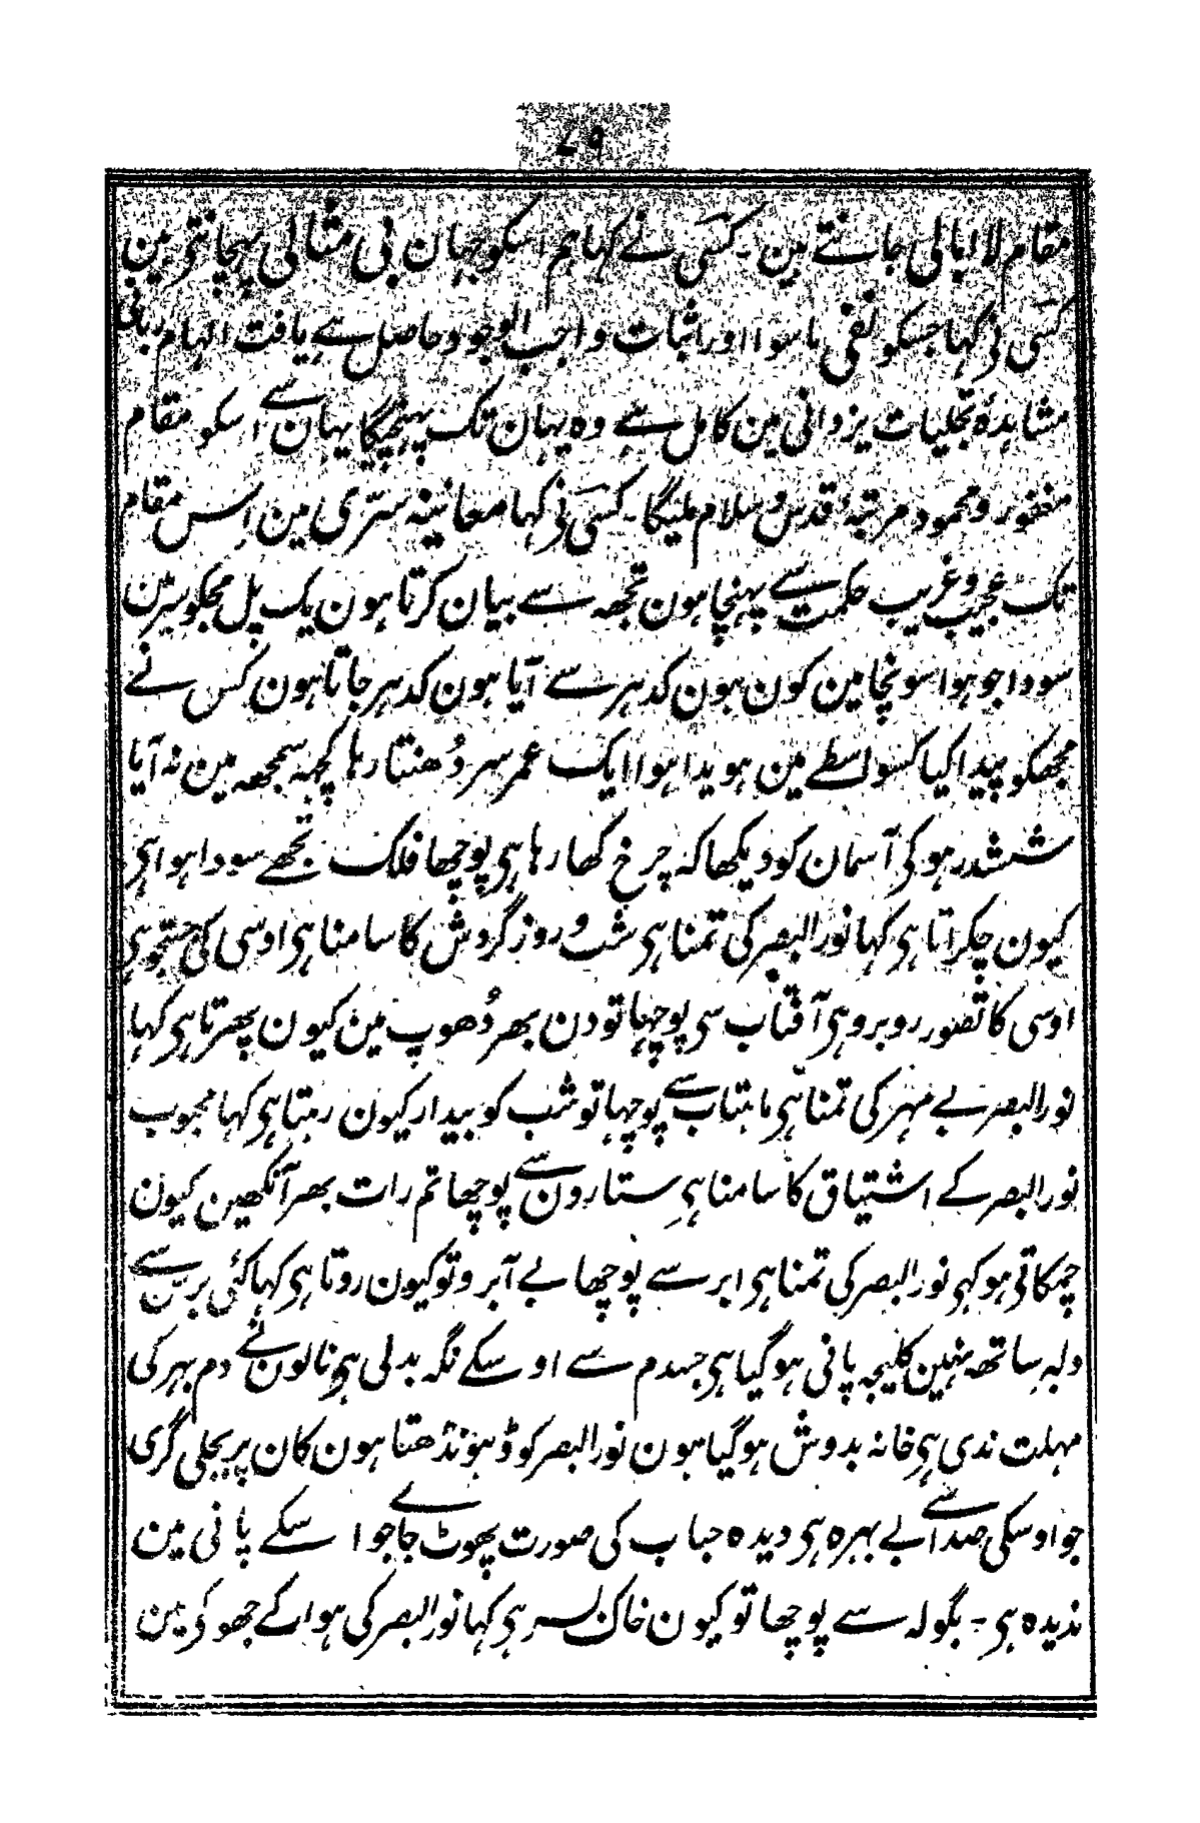 ۷۹
مقام لا ابالی جانتے ہین ۔ کسی نے کہا ہم اسکو جہان بی مثالی پہچانتی ہین
کسی نی کہا جسکو نفی ماسوا اور اثبات واجب الوجود حاصل ہے یافت الہام ربانی
مشاہدۂ تجلیات یزدانی مین کامل ہے وہ یہان تک پہنچیگا یہان سے اسکو مقام
مغفور و محمود مرتبۂ قدس و سلام ملیگا ۔ کسی نی کہا معاینہ سرّی مین اس مقام
تک عجیب و غریب حکمت سے پہنچا ہون تجھہ سے بیان کرتا ہون یک پل مجکو سر مین
سودا جو ہوا سونچا مین کون ہون کدہر سے آیا ہون کدہر جاتا ہون کس نے
مجھکو پیدا کیا کسواسطے مین ہویدا ہوا ایک عمر سر دُھنتا رہا کچہہ سمجھہ مین نہ آیا
ششدر ہو کی آسمان کو دیکھا کہ چرخ کھا رہا ہی پوچھا فلک تجھے سودا ہوا ہی
کیون چکراتا ہی کہا نور البصر کی تمنا ہی شب و روز گردش کا سامنا ہی اوسی کی جستجو ہی
اوسی کا تصور روبرو ہی آفتاب سی پوچہا تو دن بھر دُھوپ مین کیون پھرتا ہی کہا
نور البصر بے مہر کی تمنا ہی ماہتاب سے پوچہا تو شب کو بیدار کیون رہتا ہی کہا محبوب
نور البصر کے اشتیاق کا سامنا ہی ستارون سے پوچھا تم رات بھر آنکھین کیون
چمکاتی ہو کہی نور البصر کی تمنا ہی ابر سے پوچھا بے آبرو تو کیون روتا ہی کہا کئی برس سے
دلبہ ساتھہ نہین کلیجہ پانی ہو گیا ہی جہدم سے اوسکے نگہ بدلی ہی نالون نے دم بہر کی
مہلت ندی ہی خانہ بدوش ہو گیا ہون نور البصر کو ڈہونڈھتا ہون کان پر بجلی گری
جو اوسکی صدا سے بے بہرہ ہی دیدہ حباب کی صورت پھوٹ جاے جو اسکے پانی مین
ندیدہ ہی ۔ بگولہ سے پوچھا تو کیون خاک بسر ہی کہا نور البصر کی ہوا کے جھوکی مین